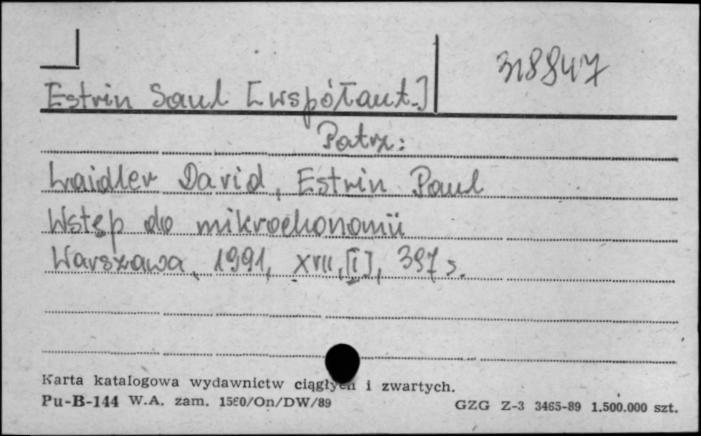 318847
Estrin Saul [współaut.]
Patrz:
Laidler David, Estrin Paul
Wstęp do mikroekonomii
Warszawa, 1991, XVII, [1], 397 s.
Karta katalogowa wydawnictw ciągłych i zwartych.
Pu-B-144 W.A. zam. 1580/On/DW/89
GZG Z-3 3465-89 1.500.000 szt.